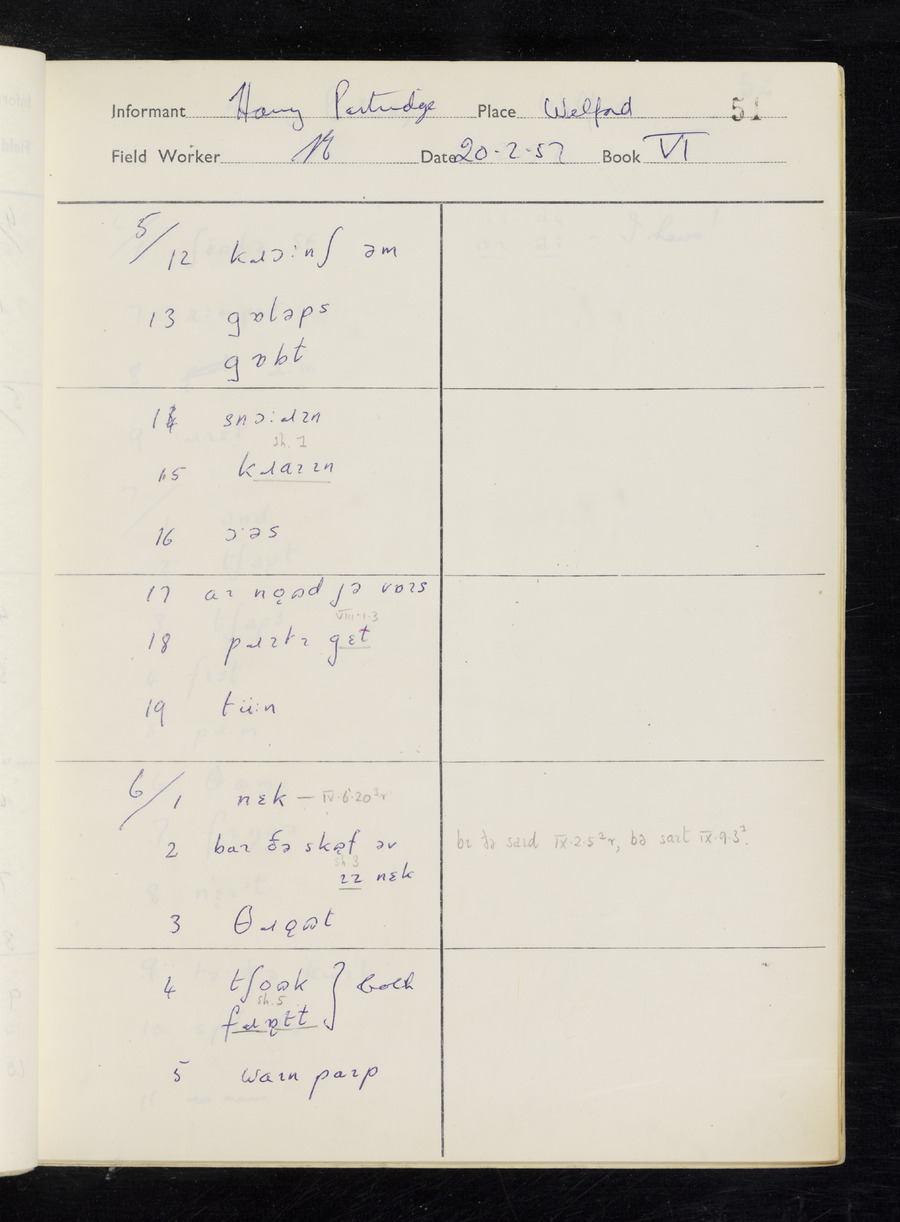 Informant Harry Partridge Place Welford 51
Field Worker Date 20-2-57 Book VI
5/12 kɹɔ:nʃ əm
13 gɒləps
gɒbt
14 snɔ:ɹɪn
sh. 1
15 kɹaɪɪn
16 ɔ:əs
17 aɪ nǫʊd jə vɔɪs
18 pɹɪtɪ gɛt
VIII·1·3
19 tü:n
6/1 nɛk — IV·6·20³r
2 baɪ ðə skɐf əv
sh 3
ɪz nɛk
bɪ ðə saɪd IX·2·5²r, bə saɪt IX·9·3²
3 θɹǫʊt
4 tʃoʊk } both
sh. 5
5 waɪn paɪp